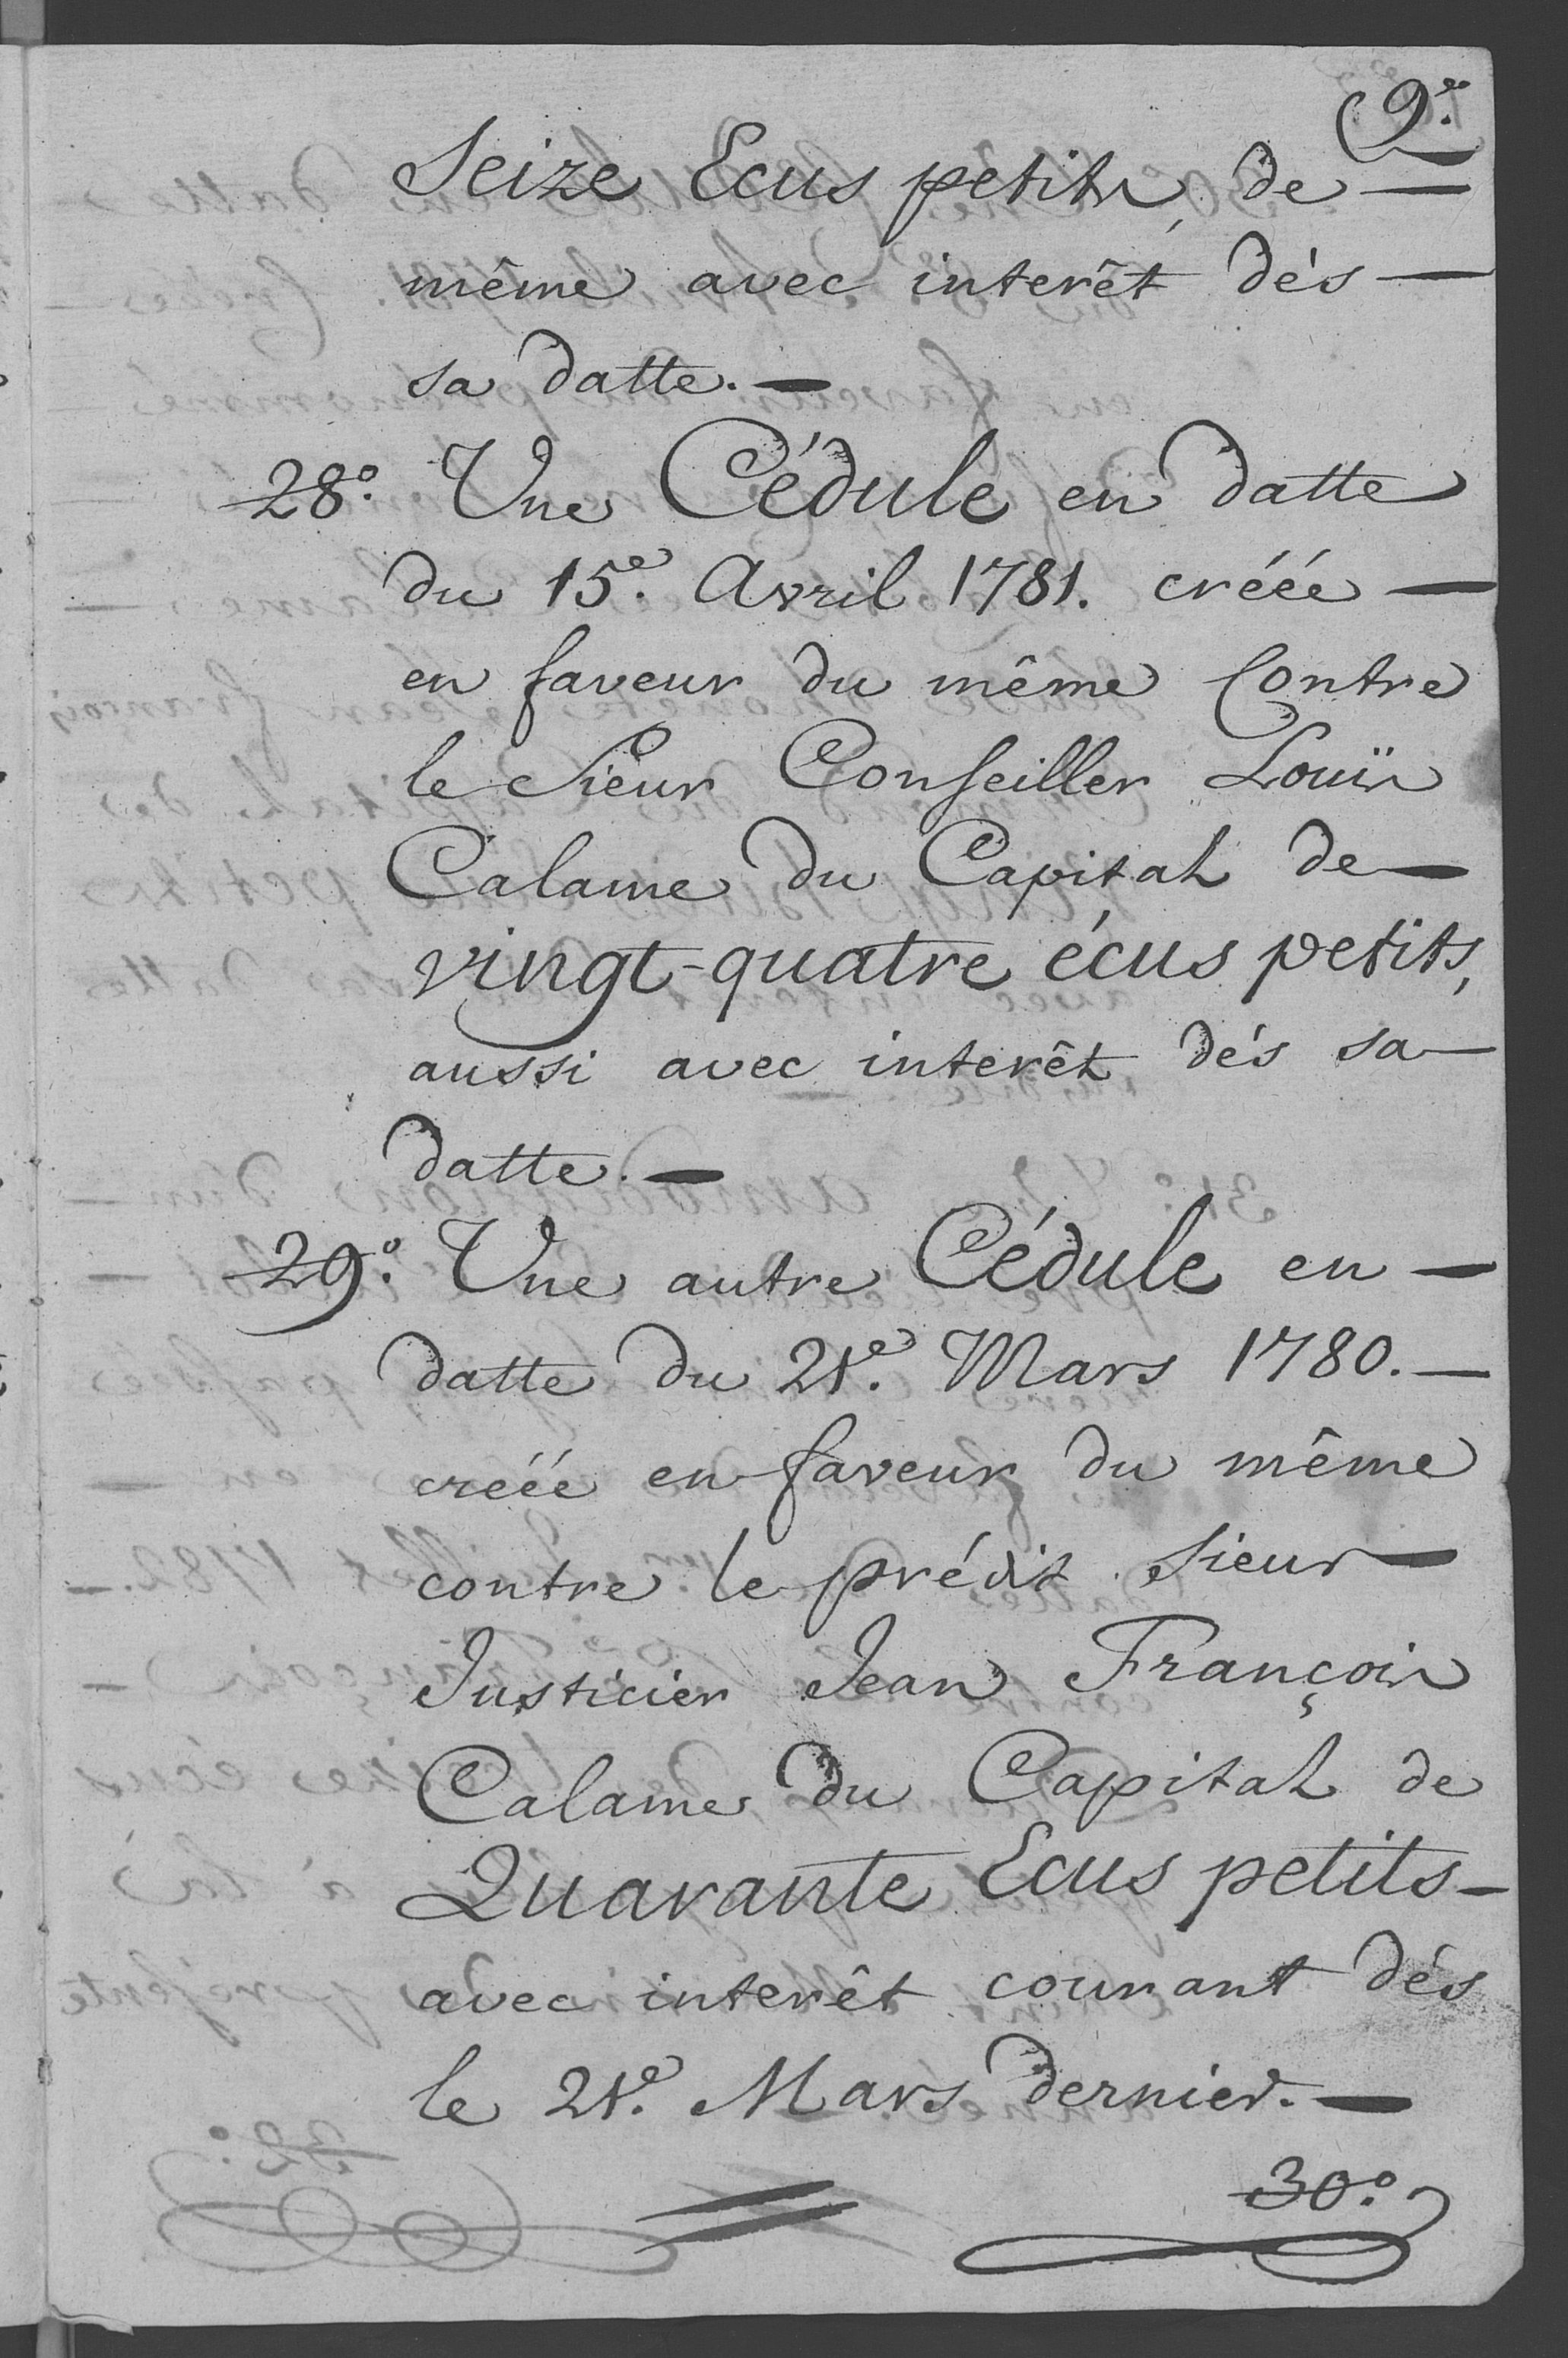 9.e
Seize Ecus petits, de —
même avec interêt dés —
sa datte. —
28.° Une Cédule en datte
du 15.e Avril 1781. créée —
en faveur du même Contre
le Sieur Conseiller Louïs
Calame du Capital de —
vingt-quatre écus petits,
aussi avec interêt dés sa —
datte. —
29.° Une autre Cédule en —
datte du 21.e Mars 1780. —
créée en faveur du même
contre le prédit Sieur —
Justicier Jean François
Calame du Capital de
Quarante Ecus petits —
avec interêt courant dés
le 21.e Mars dernier. —
30.°